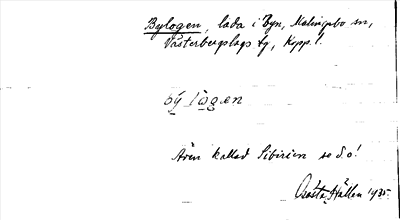 Bylogen, lada i Byn, Malingsbo sn,
Västerbergslags dg, Kopp. l.
bỳ lògæn
Även kallad Sibirien se d.o!
Gösta Hällen 1935